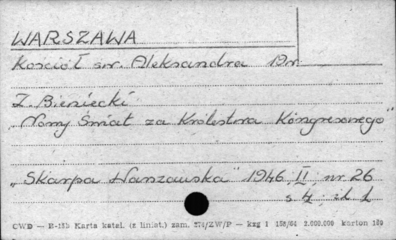 WARSZAWA
Kościół św. Aleksandra 19w.
Z. Bieniecki
„Nowy Świat za Królestwa Kongresowego"
„Skarpa Warszawska" 1946, II, nr. 26
s. 4; il. 1
CWD — E-15b Karta katal. (z liniat.) zam. 574/ZW/P — kzg 1 158/64 2.000.000 karton 180